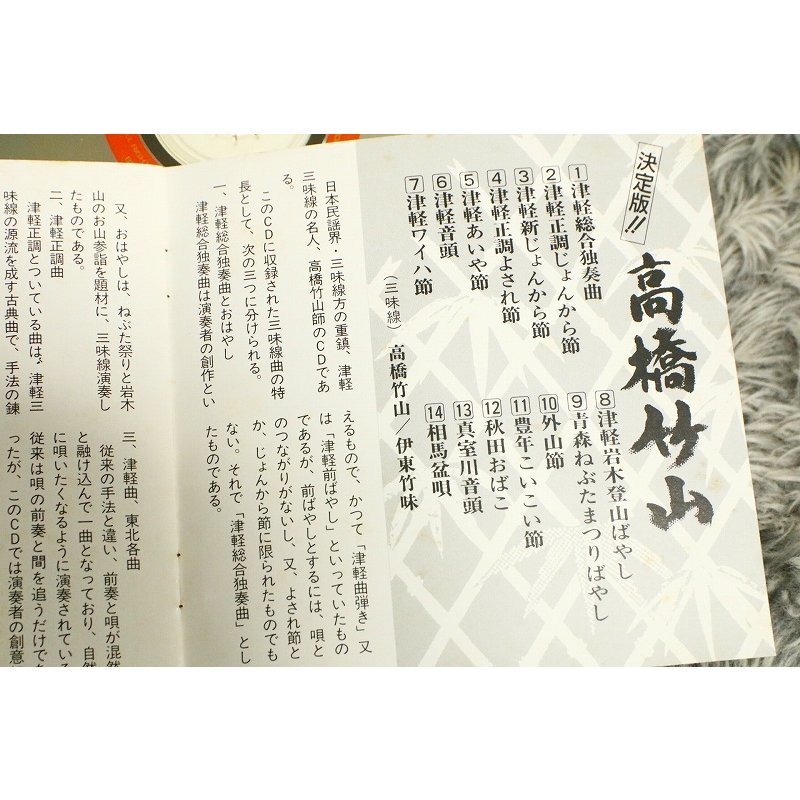 決定版!!
高橋竹山
1 津軽総合独奏曲
2 津軽正調じょんから節
3 津軽新じょんから節
4 津軽正調よされ節
5 津軽あいや節
6 津軽音頭
7 津軽ワイハ節
8 津軽岩木登山ばやし
9 青森ねぶたまつりばやし
10 外山節
11 豊年こいこい節
12 秋田おばこ
13 真室川音頭
14 相馬盆唄
(三味線) 高橋竹山/伊東竹味
日本民謡界・三味線方の重鎮、津軽
三味線の名人、高橋竹山師のCDであ
る。
このCDに収録された三味線曲の特
長として、次の三つに分けられる。
一、津軽総合独奏曲とおはやし
津軽総合独奏曲は演奏者の創作とい
えるもので、かつて「津軽曲弾き」又
は「津軽前ばやし」といっていたもの
であるが、前ばやしとするには、唄と
のつながりがないし、又、よされ節と
か、じょんから節に限られたものでも
ない。それで「津軽総合独奏曲」とし
たものである。
又、おはやしは、ねぶた祭りと岩木
山のお山参詣を題材に、三味線演奏し
たものである。
二、津軽正調曲
津軽正調とついている曲は、津軽三
味線の源流を成す古典曲で、手法の錬
三、津軽曲、東北各曲
従来の手法と違い、前奏と唄が混然
と融け込んで一曲となっており、自然
に唄いたくなるように演奏されている
従来は唄の前奏と間を追うだけであ
ったが、このCDでは演奏者の創意